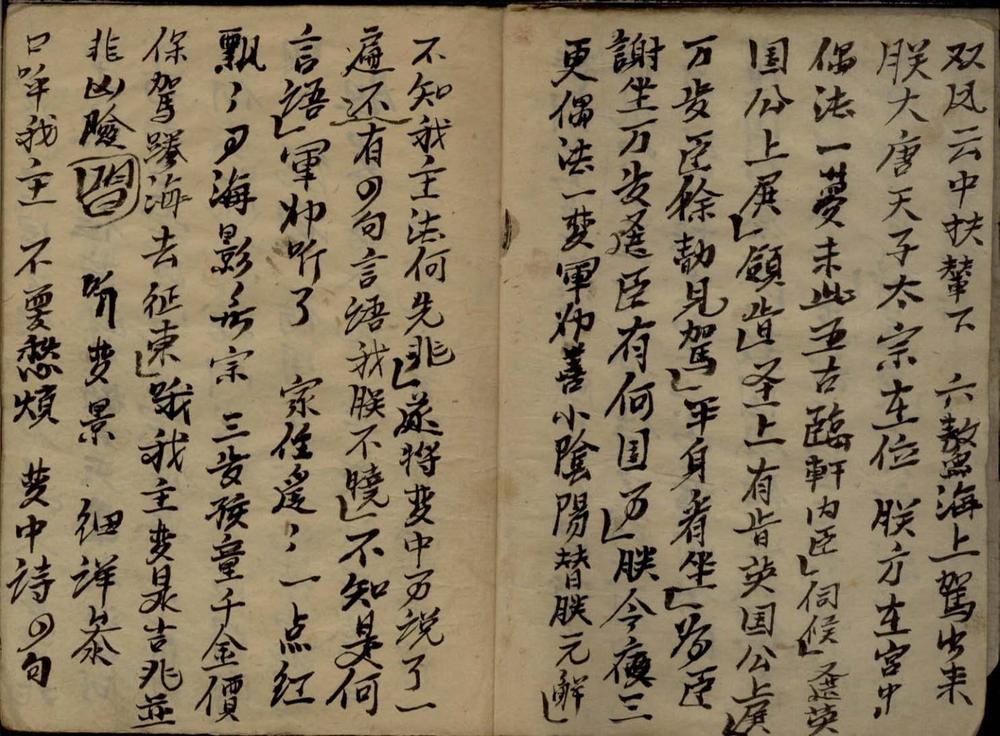 双凤云中扶辇下 六鳌海上驾出来
朕大唐天子太宗在位 朕方在宫中
偶法一梦未此五古臨軒内臣伺候 英
国公上展 領旨圣上有旨英国公上展
万岁臣徐勣見駕 平身看坐 臣
謝坐万岁 臣有何国 朕今夜三
更偶法一梦軍师善小陰陽替朕元解
不知我主法何先兆 将梦中 説了一
遍 还有四句言語我朕不曉 不知是何
言語 軍师听了 家住 〻一点红
飘〻四海影 宗 三岁孩童千金價
保駕跨海去征東 我主梦是吉兆並
非凶險 听梦景 细詳
口 我主 不要愁煩 梦中詩四句